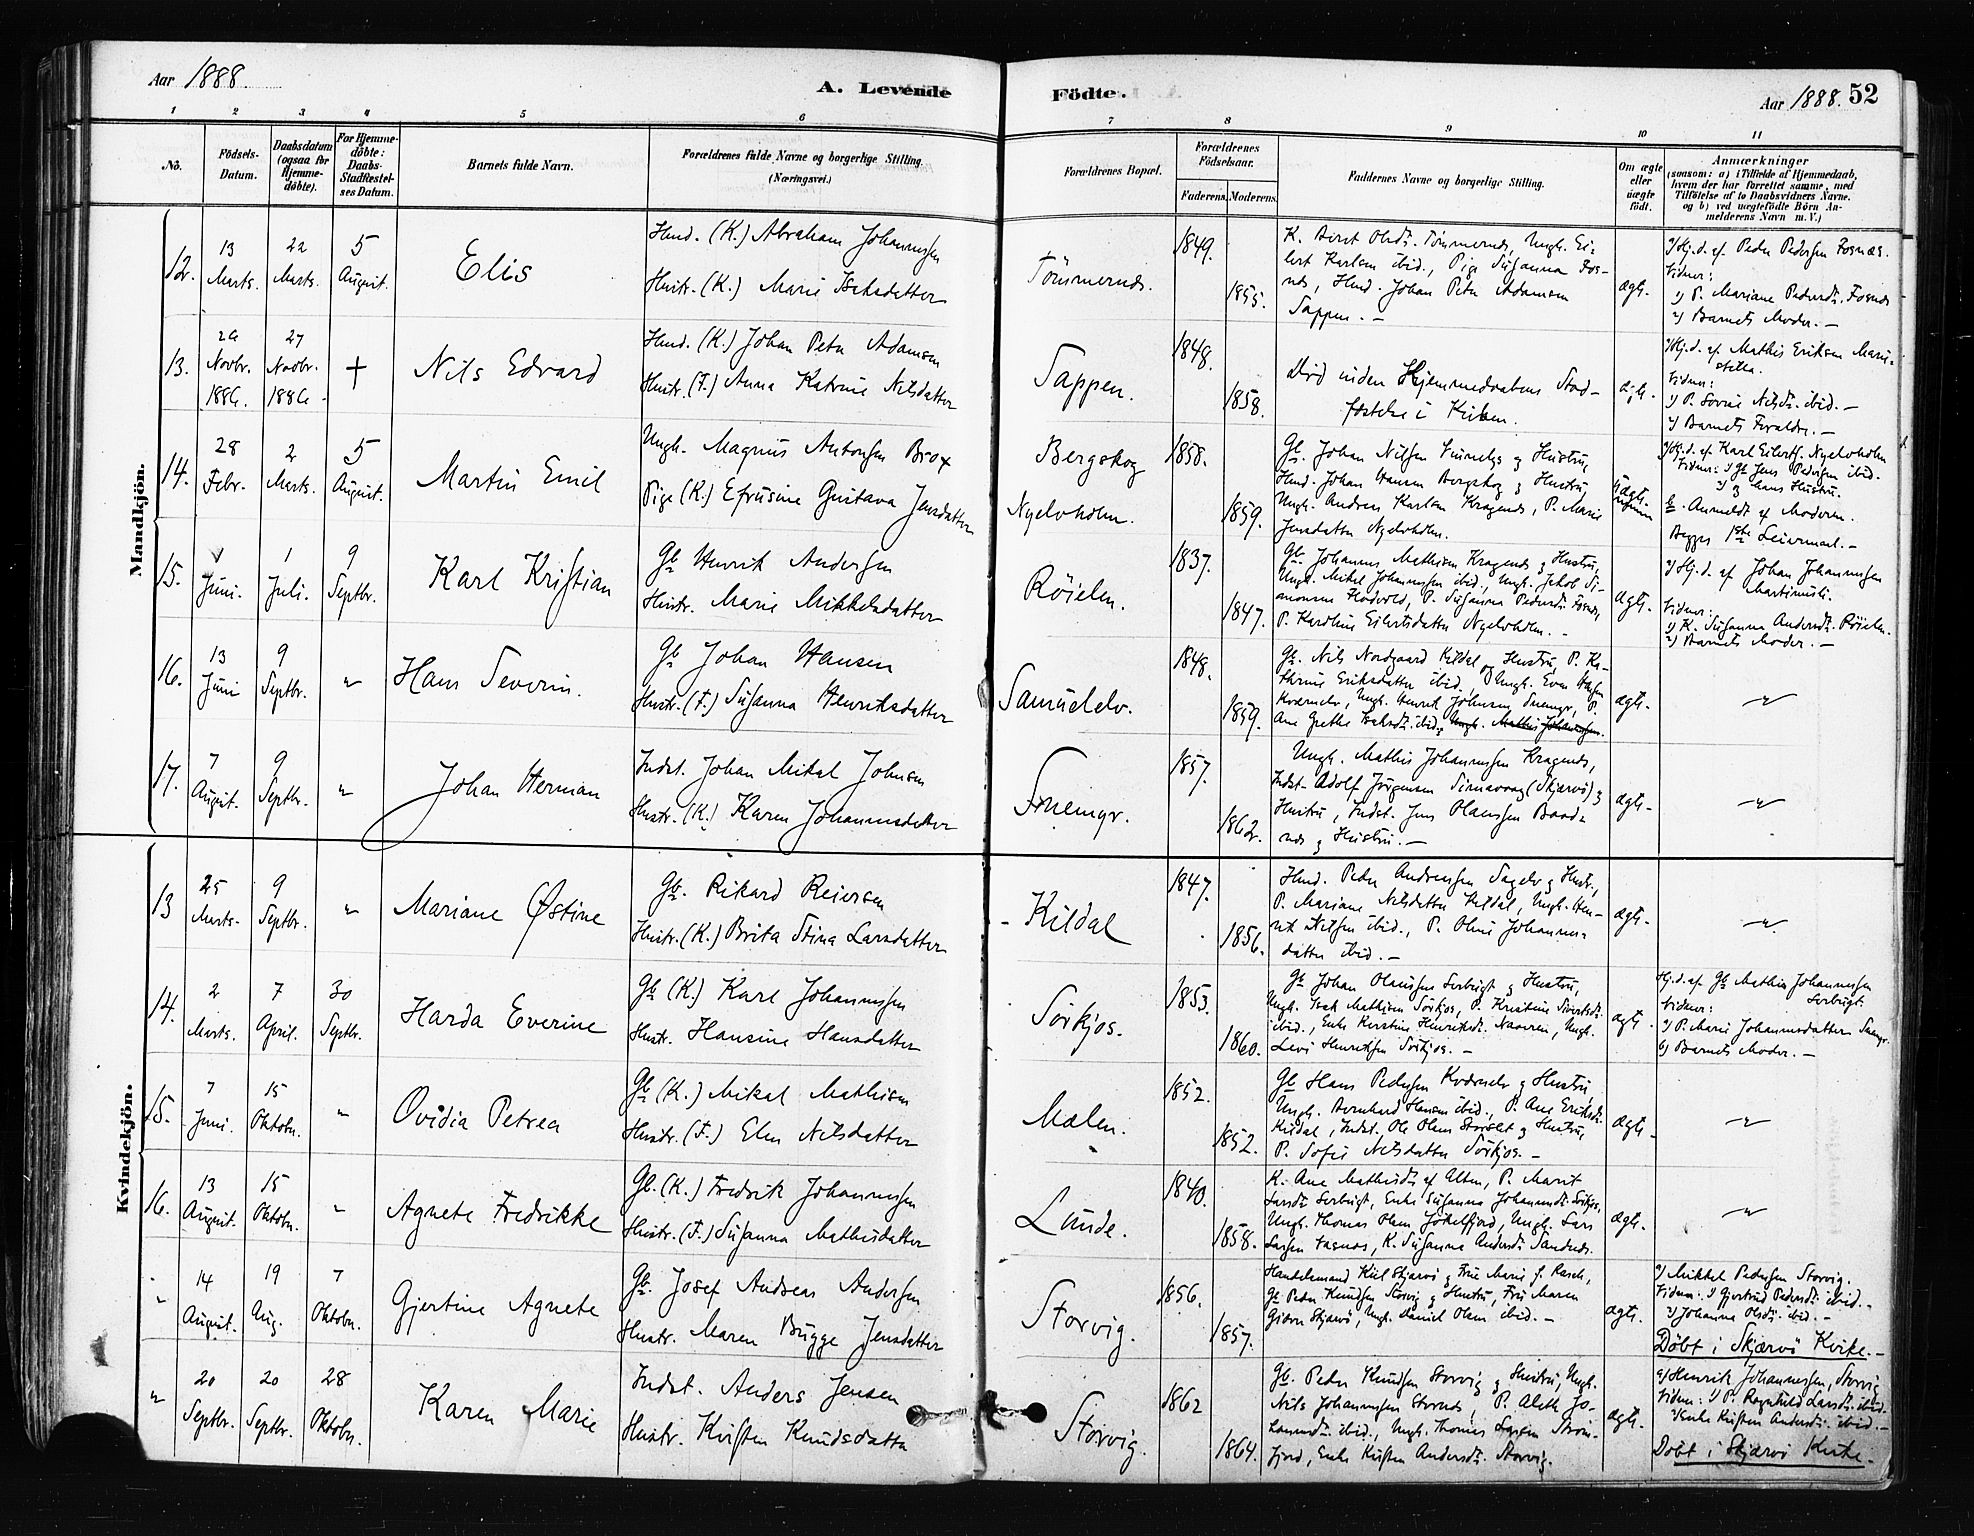 Aar 1888.
A. Levende
Födte.
Aar 1888. 52
1 2 3 4 5 6 7 8 9 10 11
No.
Födsels-
Datum.
Daabsdatum
(ogsaa for
Hjemme-
döbte).
For Hjemme-
döbte:
Daabs-
Stadfæstel-
ses Datum.
Barnets fulde Navn.
Forældrenes fulde Navne og borgerlige Stilling.
(Næringsvei.)
Forældrenes Bopæl.
Forældrenes
Födselsaar.
Faderens. Moderens.
Faddernes Navne og borgerlige Stilling.
Om ægte
eller
uægte
født.
Anmærkninger
(saasom: a) i Tilfælde af Hjemmedaab,
hvem der har forrettet samme, med
Tilföielse af to Daabsvidners Navne.
og b) ved uægtefödte Börn An-
melderens Navn m. V.)
Mandkjön.
12. 13 Marts. 22 Marts. 5 August. Elis
Hmd. (K.) Abraham Johannessen
Hustr. (K.) Marie Isaksdatter
Tömmernes. 1849. 1855.
K. Beret Olsdr. Tömmernes, Ungk. Ei-
lert Karlsen ibid., Pige Susanna Fos-
nes, Hmd. Johan Peter Adamsen
Sappen. —
ægte.
a) Hj. d. af Peder Pedersen Fosnes.
Vidner:
1) P. Mariane Pedersdr. Fosnes
2) Barnets Moder. —
13. 26 Novbr. 1886. 27 Novbr. 1886. + Nils Edvard
Hmd. (K.) Johan Peter Adamsen
Hustr. (F.) Anna Katrine Nilsdatter
Sappen. 1848. 1858.
Död inden Hjemmedaabens Stad-
fæstelse i Kirken.
ægte.
a) Hj. d. af Mathis Eriksen
Vidner:
1) P. Sovie Nilsdr. ibid. —
2) Barnets Foreldre. —
14. 28 Febr. 2 Marts. 5 August. Martin Emil
Ungk. Magnus Antonsen Brox
Pige (K.) Efrusine Gustava Jensdatter
Bergskog
Nyelvholm. 1858. 1859.
Gb. Johan Nilsen og Hustru,
Hmd. Johan Hansen Bergskog og Hustru
Ungk. Andreas Karlsen Kragenes, P. Marie
Jensdatter Nyelvholm.
a) Hj. d. af Karl Eilertsen Nyelvholm
Vidner: 1) Gb. Jens Pedersen ibid.
2) og hans Hustru.
b. Anmeldt af Moderen.
Begges 1ste Leiermaal. —
15. Juni. 1 Juli. 9 Septbr. Karl Kristian
Gb. Henrik Andersen
Hustr. Marie Mikkelsdatter
Röielen. 1837. 1847.
Gb. Johannes Mathisen Kragenes og Hustru,
Ungk. Mikal Johannessen ibid., Ungk. Jakob Si-
monsen Hodvold, P. Susanna Pedersdr. Fosnes,
P. Karoline Eilertsdatter Nyelvholm. —
ægte.
a) Hj. d. af Johan Johannessen
Vidner:
1) K. Susanna Andersdr. Röielen.
2) Barnets Moder. —
16. 13 Juni 9 Septbr. " Hans Severin.
Gb. Johan Hansen
Hustr. (F.) Susanna Henriksdatter
Samuelelv. 1848. 1859.
Gb. Nils Nordgaard Kildal og Hustru, P. Ka-
thrine Eriksdatter ibid., Ungk. Even Hansen
Kvænelv, Ungk. Henrik Johnsen Snemyr, P.
Ane Grethe Isaksdr. ibid., Ungk. Mathis Johannessen.
ægte. "
17. 7 August. 9 Septbr. " Johan Herman
Indst. Johan Mikal Johnsen
Hustr. (K.) Karen Johannesdatter
Snemyr. 1857. 1862.
Ungk. Mathis Johannessen Kragenes,
Indst. Adolf Jörgensen Simavaag (Skjærvö) og
Hustru, Indst. Jens Olaussen Baad-
nes og Hustru. —
ægte. "
Kvindekjön.
13 25 Marts. 9 Septbr. " Mariane Østine
Gb. Rikard Reiersen
Hustr. (K.) Brita Stina Larsdatter
Kildal 1847. 1856.
Hmd. Peder Andreassen Sagelv og Hustr.,
P. Mariane Nilsdatter Kildal, Ungk. Hen-
rik Nilsen ibid., P. Oline Johannes-
datter ibid. —
ægte. "
14. 2 Marts. 7 April. 30 Septbr. Harda Everine
Gb. (K.) Karl Johannessen
Hustr. Hansine Hansdatter
Sörkjos. 1853. 1860.
Gb. Johan Olaussen Sorbugt og Hustru,
Ungk. Isak Mathisen Sörkjos, P. Kristine Sivertsdr.
ibid., Enke Kerstine Henriksdr. Naveren, Ungk.
Levi Henriksen Sörkjos. —
ægte.
Hj. d. af Gb. Mathis Johannessen
Sorbugt.
Vidner:
1) P. Marie Johannesdatter Snemyr.
2) Barnets Moder. —
15. 7 Juni. 15 Oktobr. " Ovidia Petrea
Gb. (K.) Mikal Mathisen
Hustr. (F.) Elen Nilsdatter
Mælen. 1852. 1852.
Gb. Hans Pedersen Kvænelv og Hustru,
Ungk. Bernhard Hansen ibid., P. Ane Eriksdr.
Kildal, Indst. Ole Olsen Storslet og Hustru,
P. Sofie Nilsdatter Sörkjos. —
ægte. "
16. 13 August. 15 Oktobr. " Agnete Fredrikke
Gb. (K.) Fredrik Johannessen
Hustr. (F.) Susanna Mathisdatter
Lunde. 1840. 1858.
K. Ane Mathisdr. af Alten, P. Marit
Larsdr. Sorbugt, Enke Susanna Johannesdr. Sörkjos,
Ungk. Thomas Olsen Jökelfjord, Ungk. Lars
Larsen, K. Susanna Andersdr. Sandnes.
ægte. "
" 14 August. 19 Aug. 7 Oktobr. Gjertine Agnete
Gb. Josef Andreas Andersen
Hustr. Maren Brygge Jensdatter
Storvig. 1856. 1857.
Handelsmand Kiil Skjærvö og Frue Marie f. Rasch,
Gb. Peder Knudsen Storvig og Hustru, Fru Maren
Giæver Skjærvö, Ungk. Daniel Olsen ibid. —
ægte.
a) Mikkel Pedersen Storvig.
Vidner: 1) Gjertrud Pedersdr. ibid. —
2) Johanna Olsdr. ibid. —
Döbt i Skjærvö Kirke. —
" 20 Septbr. 20 Septbr. 28 Oktobr. Karen Marie
Indst. Anders Jensen
Hustr. Kirsten Knudsdatter
Storvig. 1862 1864.
Gb. Peder Knudsen Storvig og Hustru, Ungk.
Nils Johannessen Stornes, P. Aleth Jo-
hannesdr. ibid., Ungk. Thomas Larsen Ström-
fjord, Enke Kirsten Andersdr. Storvig.
ægte.
a) Henrik Johannessen, Storvig
Vidner: 1) P. Ragnhild Larsdr. ibid.
2) Enke Kirsten Andersdr. ibid. —
Döbt i Skjærvö Kirke.